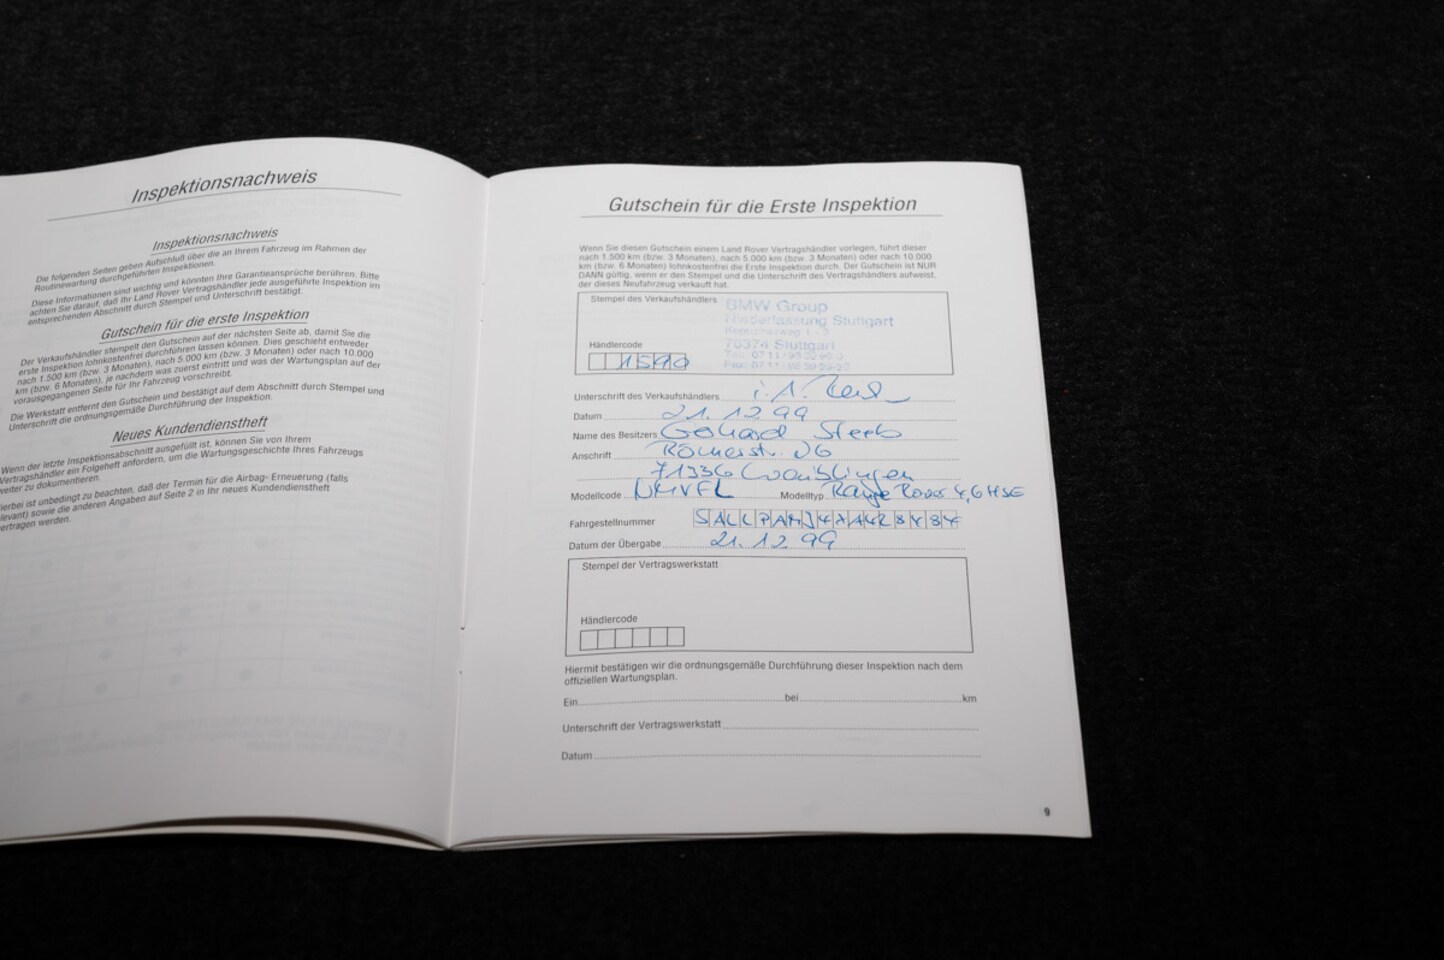 Inspektionsnachweis
Inspektionsnachweis
Die folgenden Seiten geben Aufschluß über die an Ihrem Fahrzeug im Rahmen der
Routinewartung durchgeführten Inspektionen.
Diese Informationen sind wichtig und könnten Ihre Garantieansprüche berühren. Bitte
achten Sie darauf, daß Ihr Land Rover Vertragshändler jede ausgeführte Inspektion im
entsprechenden Abschnitt durch Stempel und Unterschrift bestätigt.
Gutschein für die erste Inspektion
Der Verkaufshändler stempelt den Gutschein auf der nächsten Seite ab, damit Sie die
erste Inspektion lohnkostenfrei durchführen lassen können. Dies geschieht entweder
nach 1.500 km (bzw. 3 Monaten), nach 5.000 km (bzw. 3 Monaten) oder nach 10.000
km (bzw. 6 Monaten), je nachdem was zuerst eintritt und was der Wartungsplan auf der
vorausgegangenen Seite für Ihr Fahrzeug vorschreibt.
Die Werkstatt entfernt den Gutschein und bestätigt auf dem Abschnitt durch Stempel und
Unterschrift die ordnungsgemäße Durchführung der Inspektion.
Neues Kundendienstheft
Wenn der letzte Inspektionsabschnitt ausgefüllt ist, können Sie von Ihrem
Vertragshändler ein Folgeheft anfordern, um die Wartungsgeschichte Ihres Fahrzeugs
weiter zu dokumentieren.
ierbei ist unbedingt zu beachten, daß der Termin für die Airbag- Erneuerung (falls
levant) sowie die anderen Angaben auf Seite 2 in Ihr neues Kundendienstheft
ertragen werden.
Gutschein für die Erste Inspektion
Wenn Sie diesen Gutschein einem Land Rover Vertragshändler vorlegen, führt dieser
nach 1.500 km (bzw. 3 Monaten), nach 5.000 km (bzw. 3 Monaten) oder nach 10.000
km (bzw. 6 Monaten) lohnkostenfrei die Erste Inspektion durch. Der Gutschein ist NUR
DANN gültig, wenn er den Stempel und die Unterschrift des Vertragshändlers aufweist,
der dieses Neufahrzeug verkauft hat.
Stempel des Verkaufshändlers
BMW Group
Niederlassung Stuttgart
70374 Stuttgart
Händlercode
1590
Unterschrift des Verkaufshändlers
Datum 21.12.99
Name des Besitzers Steeb
Anschrift Römerstr.
71336 Waiblingen
Modellcode Modelltyp Range Rover 4,6 HSE
Fahrgestellnummer
Datum der Übergabe 21.12.99
Stempel der Vertragswerkstatt
Händlercode
Hiermit bestätigen wir die ordnungsgemäße Durchführung dieser Inspektion nach dem
offiziellen Wartungsplan.
Ein bei km
Unterschrift der Vertragswerkstatt
Datum
9